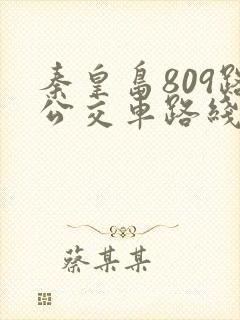 秦皇岛809路
公交車路綫
蔡某某